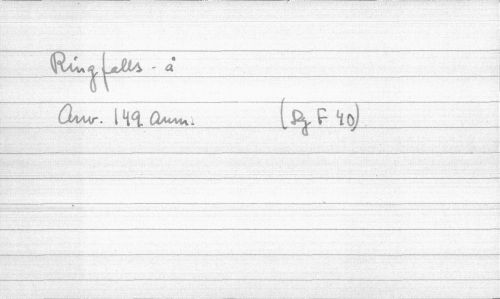 Ringfalls - å
Anv. 149. Anm. (Sg F 40)